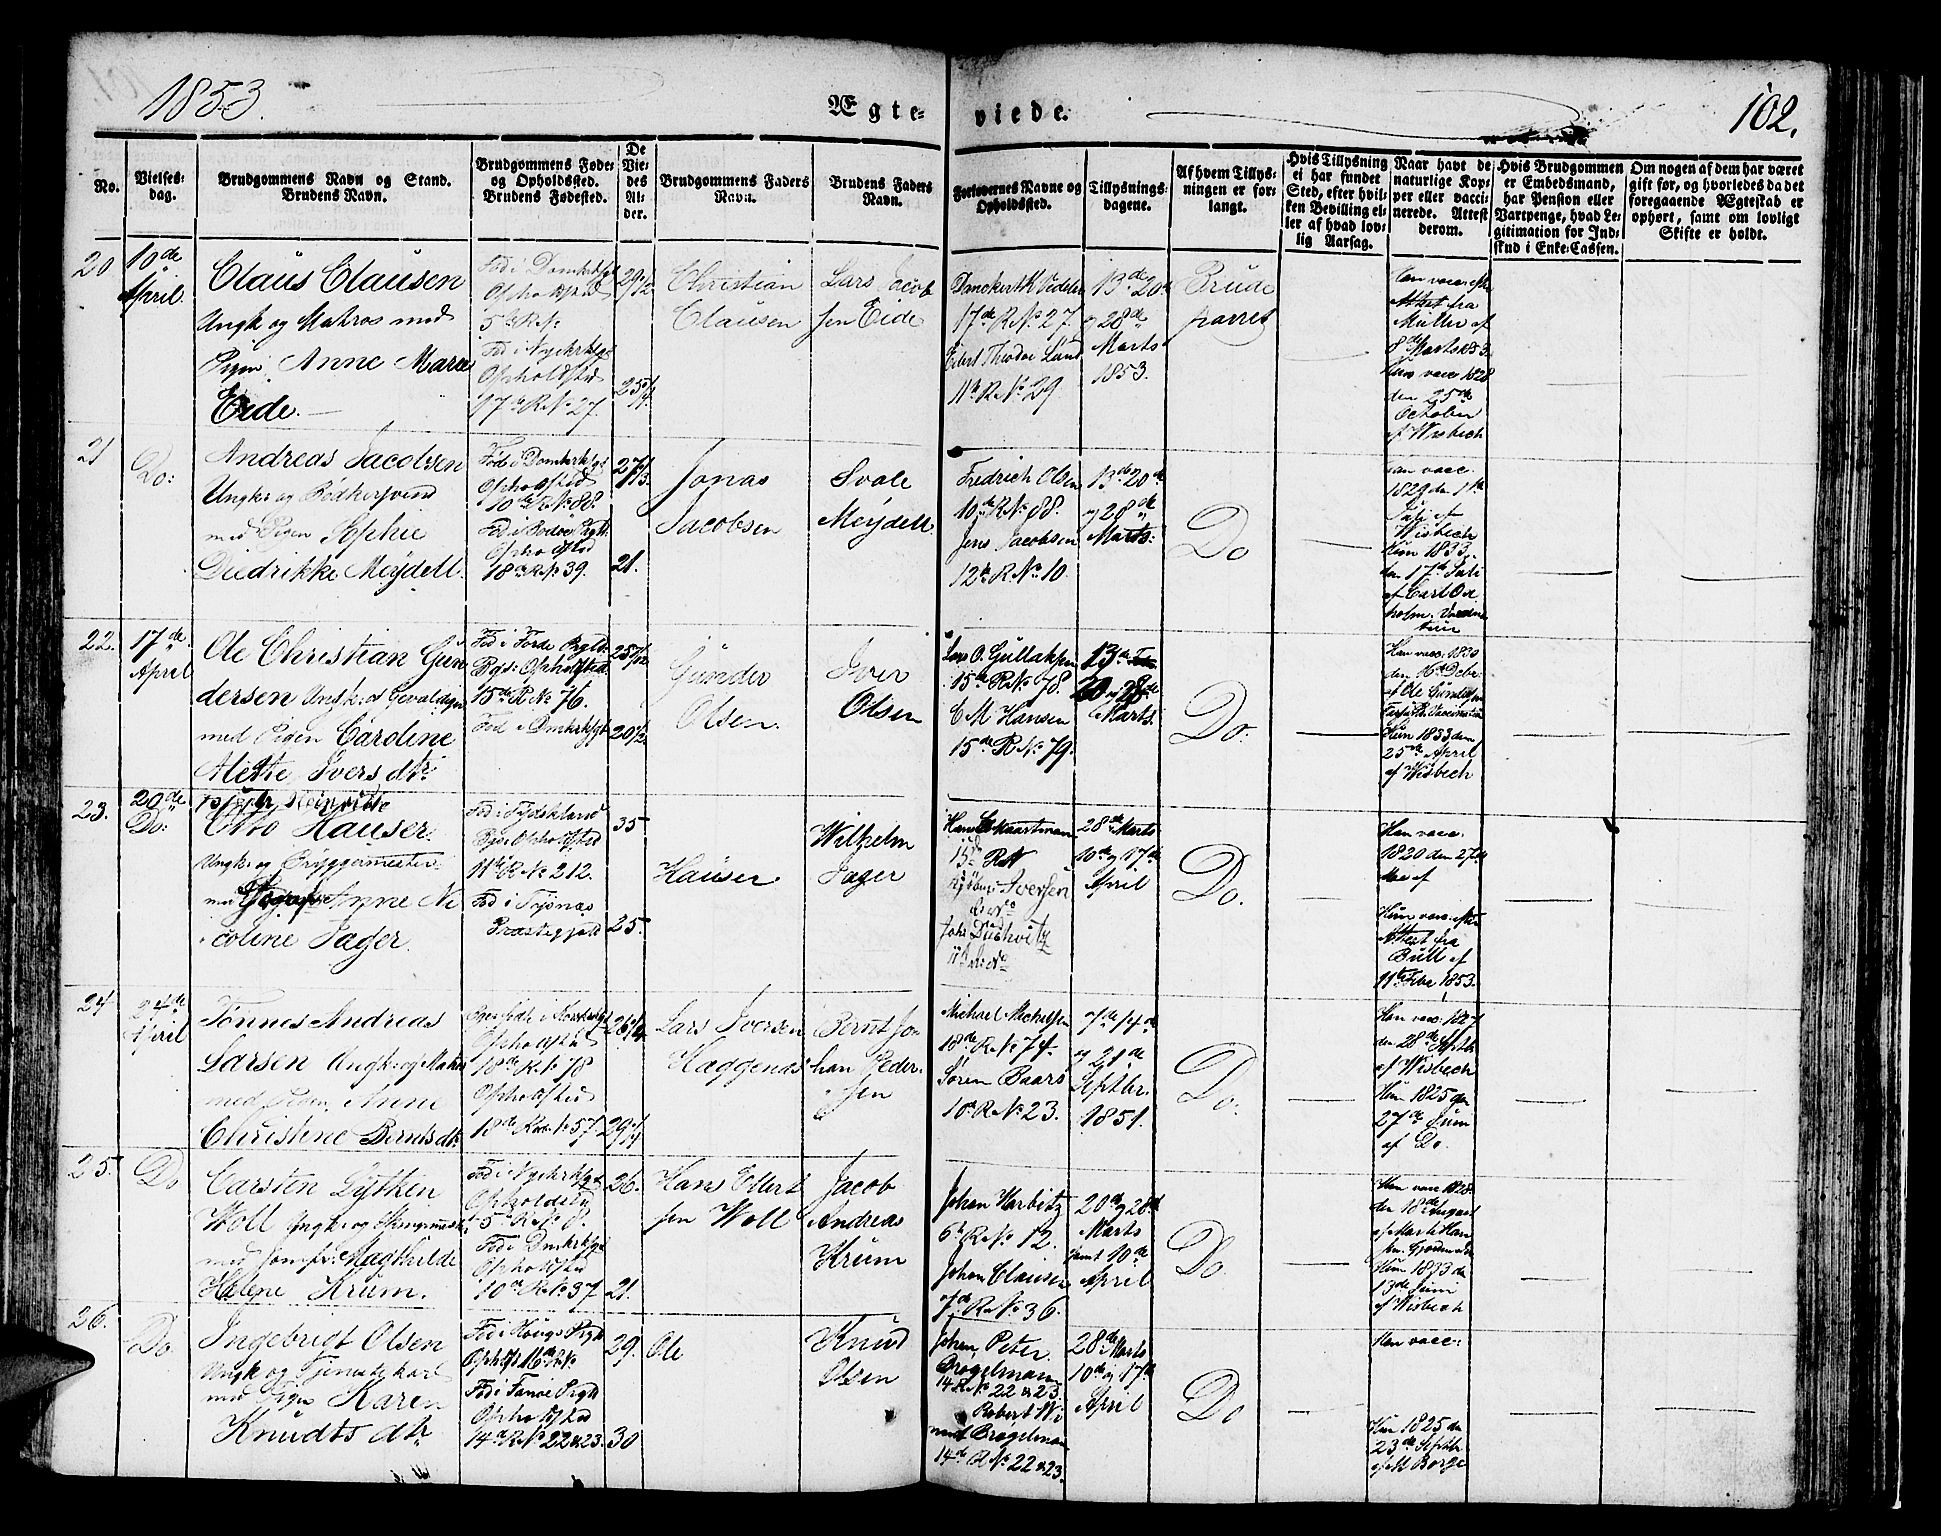 1853.
Ægte-
viede.
102.
No.
Vielses-
dag.
Brudgommens Navn og Stand.
Brudens Navn.
Brudgommens Føde-
og Opholdsted.
Brudens Fødested.
De
Vie-
des
Al-
der.
Brudgommens Faders
Navn.
Brudens Faders
Navn.
Forlovernes Navne og
Opholdsted.
Tillysnings-
dagene.
Af hvem Tillys-
ningen er for-
langt.
Hvis Tillysning
ei har fundet
Sted, efter hvil-
ken Bevilling el-
ler af hvad lov-
lig Aarsag.
Naar havt de
naturlige Kop-
per eller vacci-
nerede. Attest
derom.
Hvis Brudgommen
er Embedsmand,
har Pension eller
Vartpenge, hvad Le-
gitimation for Ind-
skud i Enke-Cassen.
Om nogen af dem har været
gift før, og hvorledes da det
foregaaende Ægteskab er
ophørt, samt om lovligt
Skifte er holdt.
20
10de
April.
Claus Clausen
Ungk og Matros med
Pigen Anne Marie
Eide.
Fød i Domkirksgt
Opholdsted
5te R No
Fød i Nykirksgt
Opholdsted
17de R No 27.
Christian
Clausen
Lars Jacob
sen Eide
17de R No 27.
11te R No 29
13de 20de
og 28de
Marts
1853.
Brude
parret
Han vacc. efter
Attest fra
Müller af
8de Marts 1853.
Hun vacc 1828
den 25de
October
af Wisbech
21
Do:
Andreas Jacobsen
Ungkr og Bødkersvend
med Pigen Sophie
Diedrikke Meÿdell.
Fød i Domkirksgt
Opholdsted
10de R No 88.
Fød i Bodøe Prgt
Opholdsted
18de R No 39.
21.
Jonas
Jacobsen
Svale
Meÿdell.
Fredrich Olsen
10de R No 88.
Jens Jacobsen
12te R No 10.
13de 20de
og 28de
Marts:
Do
Han vacc.
1829 den 11te
Juli af
Wisbech
Hun 1833.
den 17de Juli
af Carl
holm.
22.
17de
April
Ole Christian Gun
dersen Ungk: og Gevaldiger
med Pigen Caroline
Mette Iversdtr
Fød i Førde Prgld:
Opholdsted
15de R No 76.
Fød i Domkrksgt
Gunder
Olsen.
Iver
Olsen
Lars O. Gullaksen
15de R No 78.
C M Hansen
15de R No 79.
13de
20 og 28de
Marts
Do.
Han vacc. 1830
den 16de Debr
af Ole Gundersen
Vaccinateur
Hun 1833 den
25de April
af Wisbech
23.
20de
Do:
Otto Hauser
Ungk. og Bryggermester
med Anne Ni
coline Jager.
Fød i Tydskland
Opholdsted
11te R No 212.
Fød i Tysnæs
Præstegjeld
35
25.
Hauser
Wilhelm
Jager
15de R N
Iversen
28de Marts
10de og 17de
April
Do.
Han vacc.
1820 den 27de
Mai af
Hun vacc. efter
Attest fra
Bull af
11te Febr 1853.
24
24de
April
Tønnes Andreas
Larsen Ungk: og Matros
med Pigen Anne
Christine Berntsdtr
Opholdsted
18de R No 78
Opholdsted
18de R No 57
Lars Iversen
Haggenæs
Bernt Jo-
han Peder-
sen
Michael Mickelsen
18de R No 74.
Søren Baars
10de R No 23.
7de 14de
og 21de
Septbr.
1851.
Do.
Han vacc: 1827
den 28de Septbr
af Wisbech
Hun 1825 den
27de Juni
af Do.
25.
Do
Carsten Lÿtken
Woll Ungk: og
med Jomfr: Magthilde
Helene Krum.
Fød i Nykirksgt
Opholdsted
5te R No 8.
Fød i Domkrksgt
Opholdsted
10de R No 37
26.
21.
Hans Ellert
sen Woll
Jacob
Andreas
Krum
Johan Harbitz
6te R No 12.
Johan Clausen
R No 36.
20de og 28de
Marts
samt 10de
April
Do
Han vacc 1828.
den 18de August
af Marti Han
sen
Hun 1833 den
13de Juni
af Wisbech
26.
Do
Ingebrigt Olsen
Ungk og Tjenestekarl
med Pigen Karen
Knudts dtr
Fød i Houg Prgt
Ophold 16de R No
Fød i Fanøe Prgt
Opholdsted
14de R No 22 & 23.
29.
30
Ole
Knud
Olsen
Johan Peter
Brøgelman
14 R No 22 & 23.
Robert Wi
Brøgelman
14de R No 22 & 23.
28de Marts
10de og 17de
April
Do
Han vacc:
Hun 1825 den
23de Septbr
af M Borge